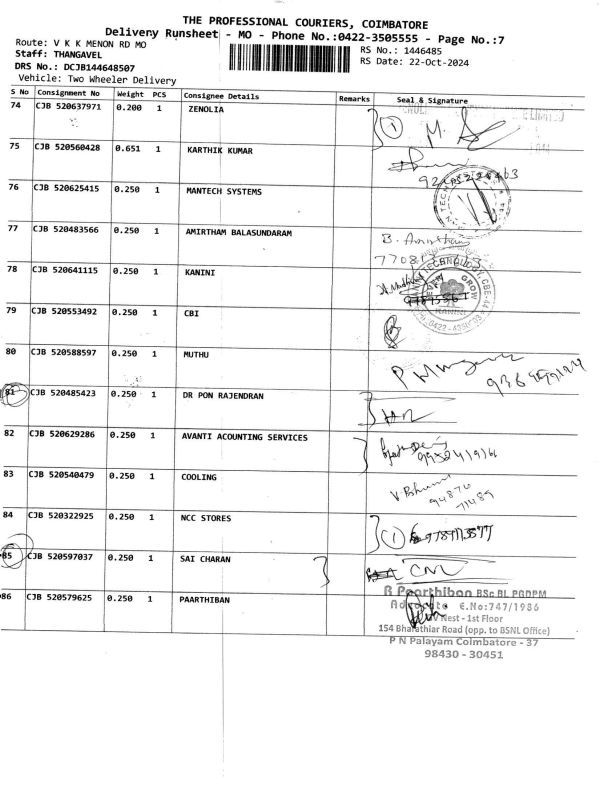 THE PROFESSIONAL COURIERS, COIMBATORE
Delivery Runsheet - MO - Phone No.:0422-3505555 - Page No.:7
Route: V K K MENON RD MO
RS No.: 1446485
Staff: THANGAVEL
RS Date: 22-Oct-2024
DRS No.: DCJB144648507
Vehicle: Two Wheeler Delivery
S No Consignment No Weight PCS Consignee Details Remarks Seal & Signature
74 CJB 520637971 0.200 1 ZENOLIA
75 CJB 520560428 0.651 1 KARTHIK KUMAR
76 CJB 520625415 0.250 1 MANTECH SYSTEMS
77 CJB 520483566 0.250 1 AMIRTHAM BALASUNDARAM
78 CJB 520641115 0.250 1 KANINI
79 CJB 520553492 0.250 1 CBI
80 CJB 520588597 0.250 1 MUTHU
81 CJB 520485423 0.250 1 DR PON RAJENDRAN
82 CJB 520629286 0.250 1 AVANTI ACOUNTING SERVICES
83 CJB 520540479 0.250 1 COOLING
84 CJB 520322925 0.250 1 NCC STORES
85 CJB 520597037 0.250 1 SAI CHARAN
86 CJB 520579625 0.250 1 PAARTHIBAN
R Paarthiban BSc BL PGDPM
Advocate E.No:747/1986
Nest - 1st Floor
154 Bharathiar Road (opp. to BSNL Office)
P N Palayam Coimbatore - 37
98430 - 30451